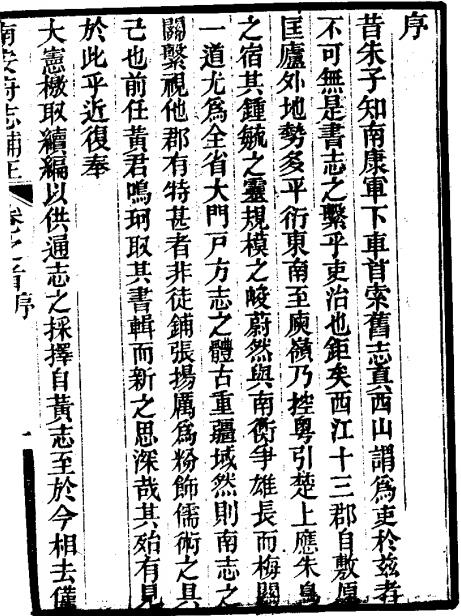 序
昔朱子知南康軍下車首索舊志真西山謂為吏於茲者
不可無是書志之繫乎吏治也鉅矣西江十三郡自敷原
匡廬外地勢多平衍東南至庾嶺乃控粵引楚上應朱鳥
之宿其鍾毓之靈規模之峻蔚然與南衡爭雄長而梅關
一道尤為全省大門戶方志之體古重疆域然則南志之
關繫視他郡有特甚者非徒鋪張揚厲為粉飾儒術之具
己也前任黃君鳴珂取其書輯而新之思深哉其殆有見
於此乎近復奉
大憲檄取續編以供通志之採擇自黃志至於今相去僅
南安府志補正 卷之首 序 一